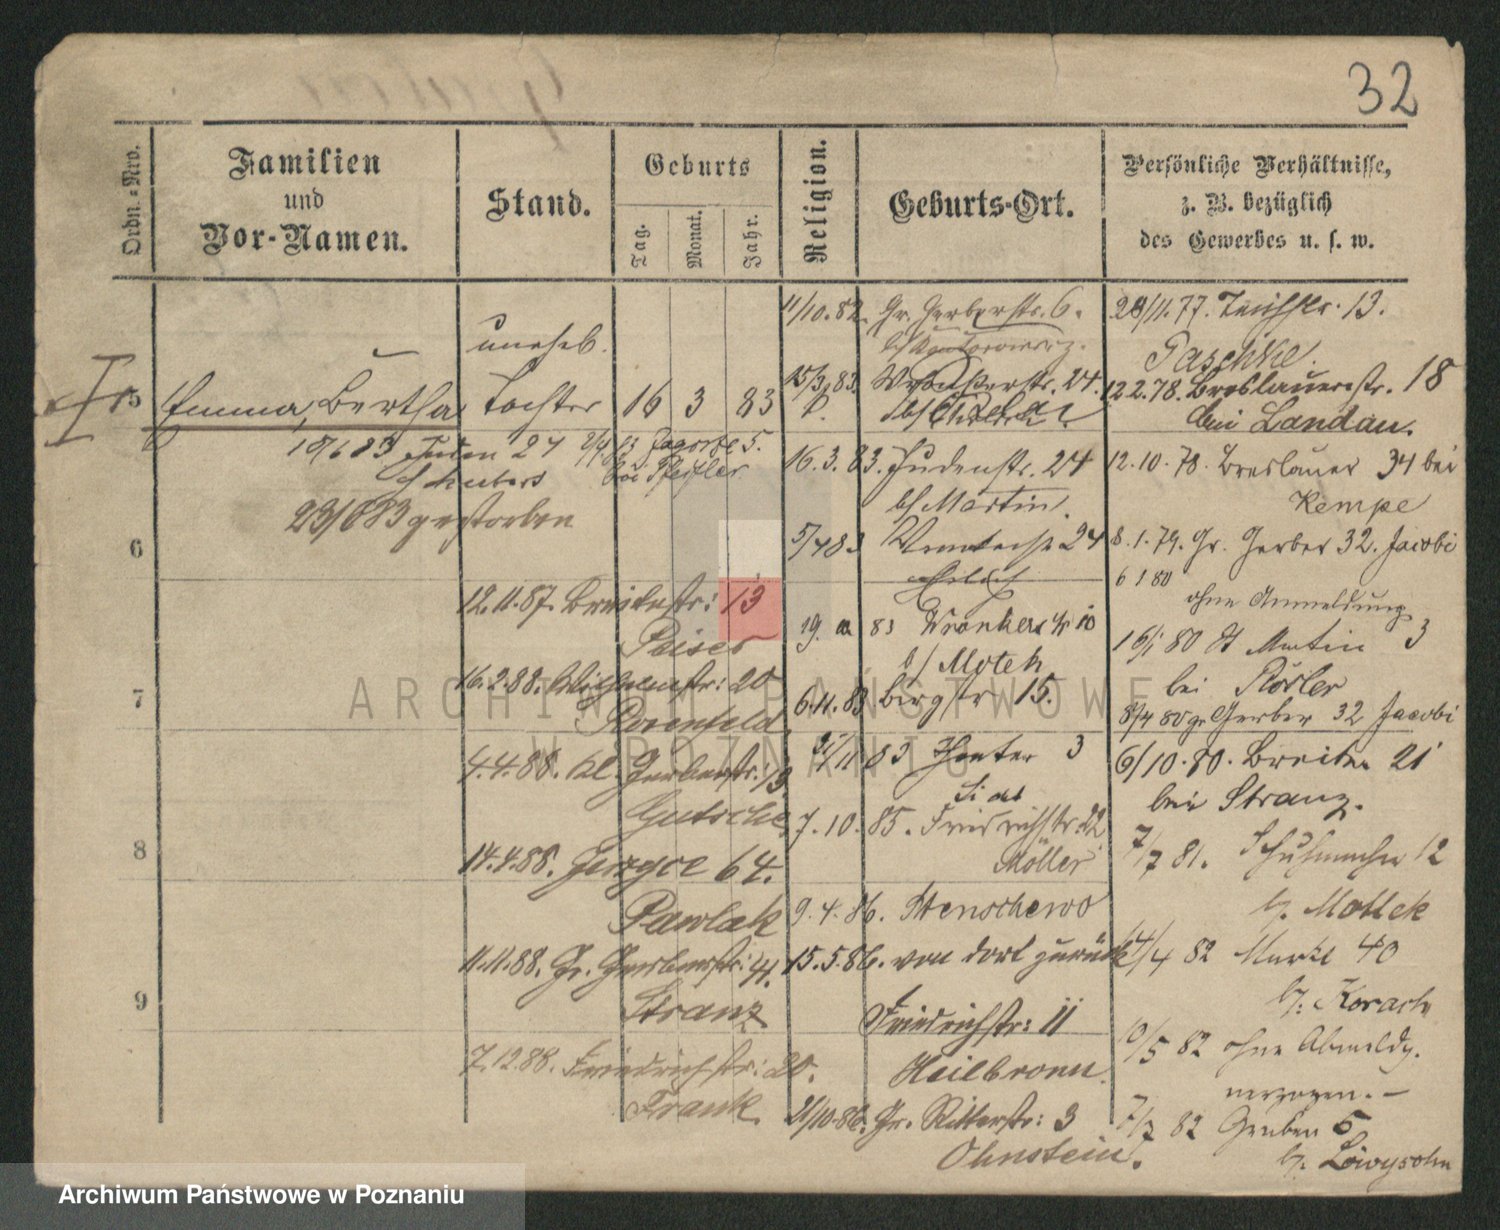 32
Ordn.-Nro.
Familien
und
Vor-Namen.
Stand.
Geburts
Tag.
Monat.
Jahr.
Religion.
Geburts-Ort.
Persönliche Verhältnisse,
z. B. bezüglich
des Gewerbes u. s. w.
5 Emma, Bertha
uneheb.
Tochter 16 3 83
Juden 27
Schubert
2/7 83 5.
bei
23/6 83 gestorben
6
7
8
9
12.11.87. Breitestr: 13
Peiser
16.2.88. Wilhelmstr: 20
Rosenfeld
4.4.88. Kl. Gerberstr: 13.
Gutsche
14.4.88. Jerzyce 64.
Pawlak
11.11.88. Gr. Gerberstr: 41.
Stranz
7.12.88. Friedrichstr: 20.
Frank
11/10.82. Gr. Gerberstr. 6.
15/3 83. Wronkerstr. 24.
16.3.83. Judenstr. 27
b/ Martin.
5/4 83 24
19. 10 83 Wronkerstr 10
b/ Motek
6.11.83 Bergstr 15.
11 83 3
7.10.85. Friedrichstr. 22
Möller
9.4.86. Stenschewo
15.5.86. von dort zurück
Friedrichstr: 11
Heilbronn.
21/10.86. Gr. Ritterstr: 3
Ohnstein.
28/11.77. 13.
Paschke.
12.2.78. Breslauerstr. 18
bei Landau.
12.10.78. Breslauer 34 bei
Kempe
8.1.79. Gr. Gerber 32. Jacobi
6 1 80
ohne Anmeldung
16/1 80 St Martin 3
bei Rösler
8/4 80 gr Gerber 32 Jacobi
6/10.80. Breiten 21
bei Stranz.
7/7 81. Schuhmacher 12
b. Mottek
14/4 82 Markt 40
b. Korach
10/5 82 ohne Abmeldg.
verzogen. —
7/7 82 Graben 5
b. Löwysohn
ARCHIWUM PAŃSTWOWE
W POZNANIU
Archiwum Państwowe w Poznaniu